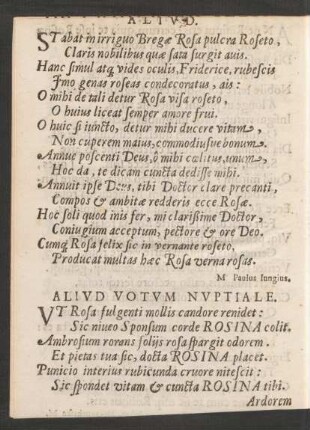 ALIVD.
STabat in irriguo Bregæ Rosa pulcra Roseto,
Claris nobilibus quæ sata surgit auis.
Hanc simul atq; vides oculis, Friderice, rubescis
Imo genas roseas condecoratus, ais:
O mihi de tali detur Rosa visa roseto,
O huius liceat semper amore frui.
O huic si iuncto, detur mihi ducere vitam,
Non cuperem maius, commodiusue bonum.
Annue poscenti Deus, ô mihi cœlitus, unum,
Hoc da, te dicam cuncta dedisse mihi.
Annuit ipse Deus, tibi Doctor clare precanti,
Compos & ambitæ redderis ecce Rosæ.
Hoc soli quod inis fer, mi clarissime Doctor,
Coniugium acceptum, pectore & ore Deo.
Cumq; Rosa felix sic in vernante roseto,
Producat multas hæc Rosa verna rosas.
M Paulus Iungius.
ALIVD VOTVM NVPTIALE.
VT Rosa fulgenti mollis candore renidet:
Sic niueo Sponsum corde ROSINA colit.
Ambrosium rorans folijs rosa spargit odorem.
Et pietas tua sic, docta ROSINA placet.
Punicio interius rubicunda cruore nitescit:
Sic spondet vitam & cuncta ROSINA tibi.
Ardorem